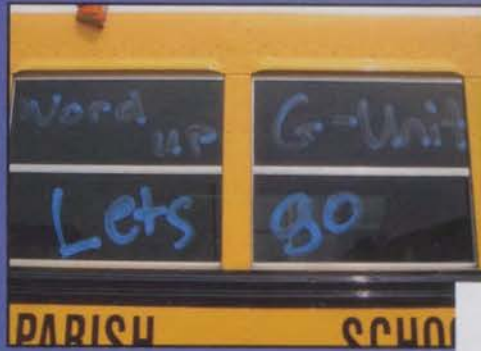 Word up G-Unit
Lets go
PARISH SCHOO